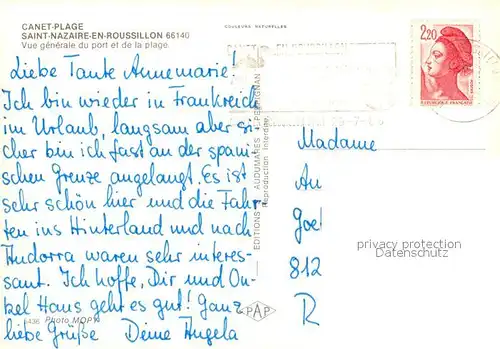 CANET-PLAGE
SAINT-NAZAIRE-EN-ROUSSILLON 66140
Vue générale du port et de la plage.
COULEURS NATURELLES
2,20
REPUBLIQUE FRANÇAISE
Liebe Tante Annemarie!
Ich bin wieder in Frankreich
im Urlaub, langsam aber si-
cher bin ich fast an der spani-
schen Grenze angelangt. Es ist
sehr schön hier und die Fahr-
ten ins Hinterland und nach
Andorra waren sehr interes-
sant. Ich hoffe, Dir und On-
kel Hans geht es gut! Ganz
liebe Grüße Deine Angela
Photo MOPY
EDITIONS AUDUMARES PERPIGNAN
Reproduction interdite
PAP
Madame
An
Goe
812
R
privacy protection
Datenschutz